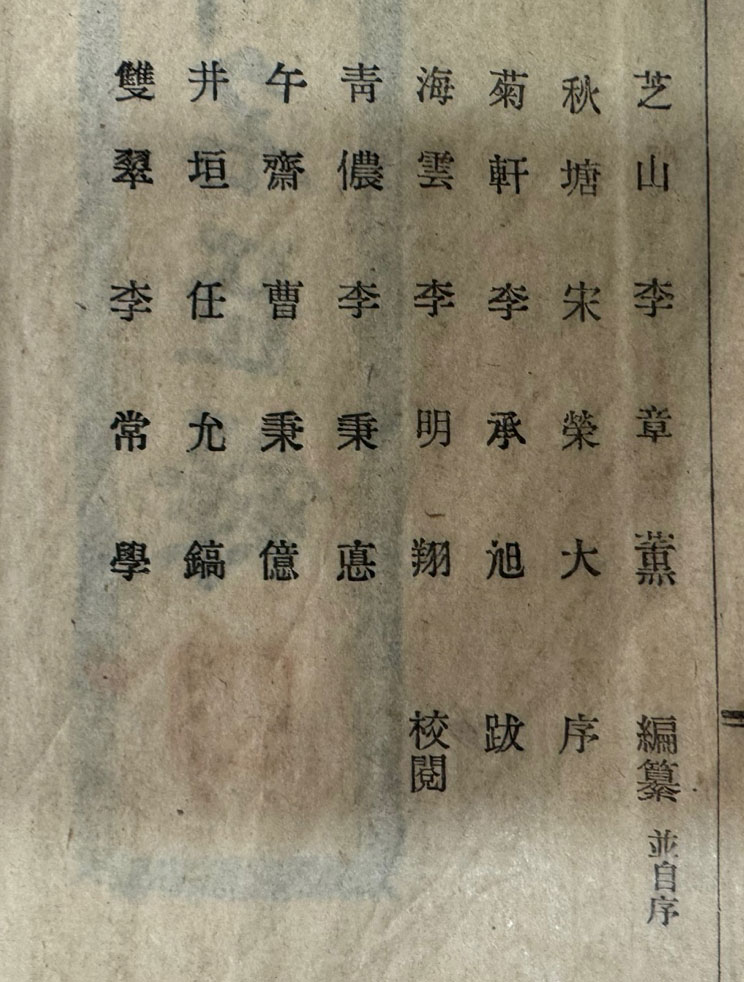 芝山 李章薰 編纂 並自序
秋塘 宋榮大 序
菊軒 李承旭 跋
海雲 李明翔 校閱
青儂 李秉悳
午齋 曹秉億
井垣 任允鎬
雙翠 李常學